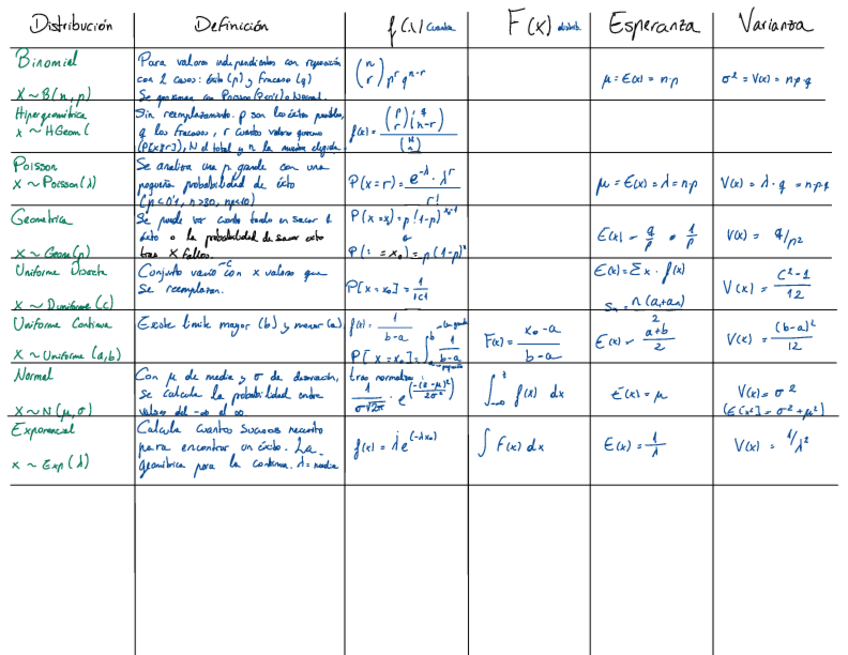 Distribución Definición f(x) cuantía F(x) distrib. Esperanza Varianza
Binomial
X ~ B(n, p)
Para valores independientes con reposición
con 2 casos: éxito (p) y fracaso (q)
Se aproximan con Poisson o Normal.
(n r) p^r q^{n-r}
μ = E(x) = n·p
σ² = V(x) = n p q
Hipergeométrica
x ~ HGeom (
Sin reemplazamiento. p son los éxitos posibles,
q los fracasos, r cuantos valores queremos
(P[x=r]), N el total y n la muestra elegida.
f(x) = (p r)(q n-r) / (N n)
Poisson
X ~ Poisson(λ)
Se analiza una n grande con una
pequeña probabilidad de éxito
(p<0'1, n>30, np<10)
P(x=r) = e^{-λ} · λ^r / r!
μ = E(x) = λ = n·p
V(x) = λ · q = n p q
Geometrica
X ~ Geom(p)
Se puede ver cuanto tardo en sacar 1
éxito o la probabilidad de sacar éxito
tras X fallos.
P(x=x) = p(1-p)^{x-1}
o
= x₀) = p(1-p)^x
E(x) = q/p o 1/p
V(x) = q/p²
Uniforme Discreta
X ~ Duniforme (c)
Conjunto vario con x valores que
se reemplazan.
P[x=x₀] = 1/|c|
E(x) = Σx · f(x)
Sn = n(a₁+an) / 2
V(x) = (c²-1) / 12
Uniforme Continua
X ~ Uniforme (a,b)
Existe limite mayor (b) y menor (a)
f(x) = 1 / (b-a)
P[x=x₀] = ∫_a^b 1 / (b-a)
F(x) = (x₀-a) / (b-a)
E(x) = (a+b) / 2
V(x) = (b-a)² / 12
Normal
X ~ N(μ, σ)
Con μ de media y σ de desviación,
se calcula la probabilidad entre
valores del -∞ al ∞
tras normalizar
1 / (σ√2π) · e^(-(x-μ)² / 2σ²)
∫_{-∞}^z f(x) dx
E(x) = μ
V(x) = σ²
(E[x²] = σ² + μ²)
Exponencial
x ~ Exp(λ)
Calcula cuantos sucesos necesito
para encontrar un éxito. La
geométrica pero la continua. λ = media
f(x) = λe^(-λx₀)
∫ F(x) dx
E(x) = 1/λ
V(x) = 1/λ²